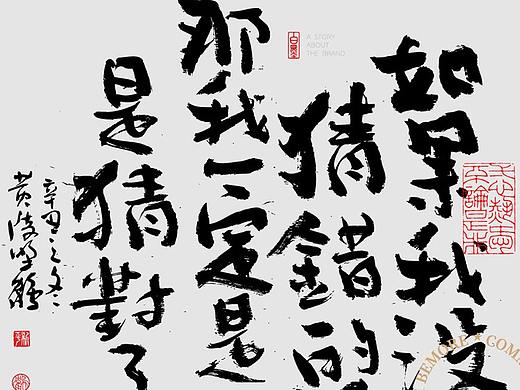 如果我没
猜錯的
那我一定是
是猜對了
辛丑之冬
黄陵野鶴
白墨
A STORY
ABOUT
THE BRAND
BEMORE ★ COM